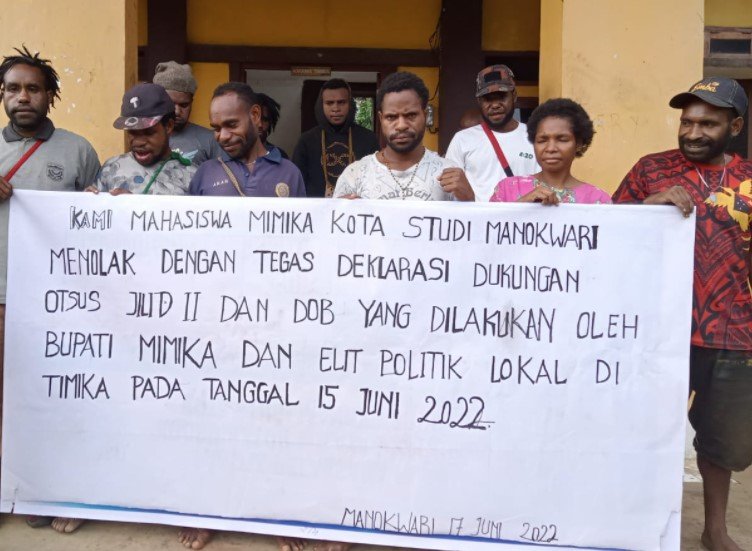 KAMI MAHASISWA MIMIKA KOTA STUDI MANOKWARI
MENOLAK DENGAN TEGAS DEKLARASI DUKUNGAN
OTSUS JILID II DAN DOB YANG DILAKUKAN OLEH
BUPATI MIMIKA DAN ELIT POLITIK LOKAL DI
TIMIKA PADA TANGGAL 15 JUNI 2022.
MANOKWARI 17 JUNI 2022